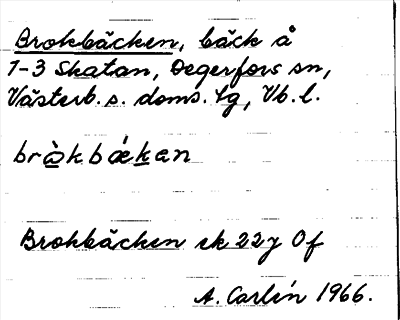 Brokbäcken, bäck å
1-3 Skatan, Degerfors sn,
Västerb. s. doms. lg, Vb. l.
bròkbǽkan
Brokbäcken ek 22y Of
A. Carlín 1966.